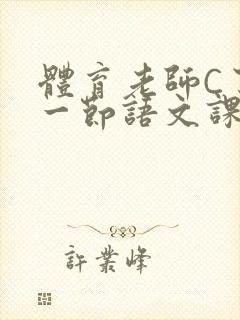 體育老師C
一節語文課
許業峰